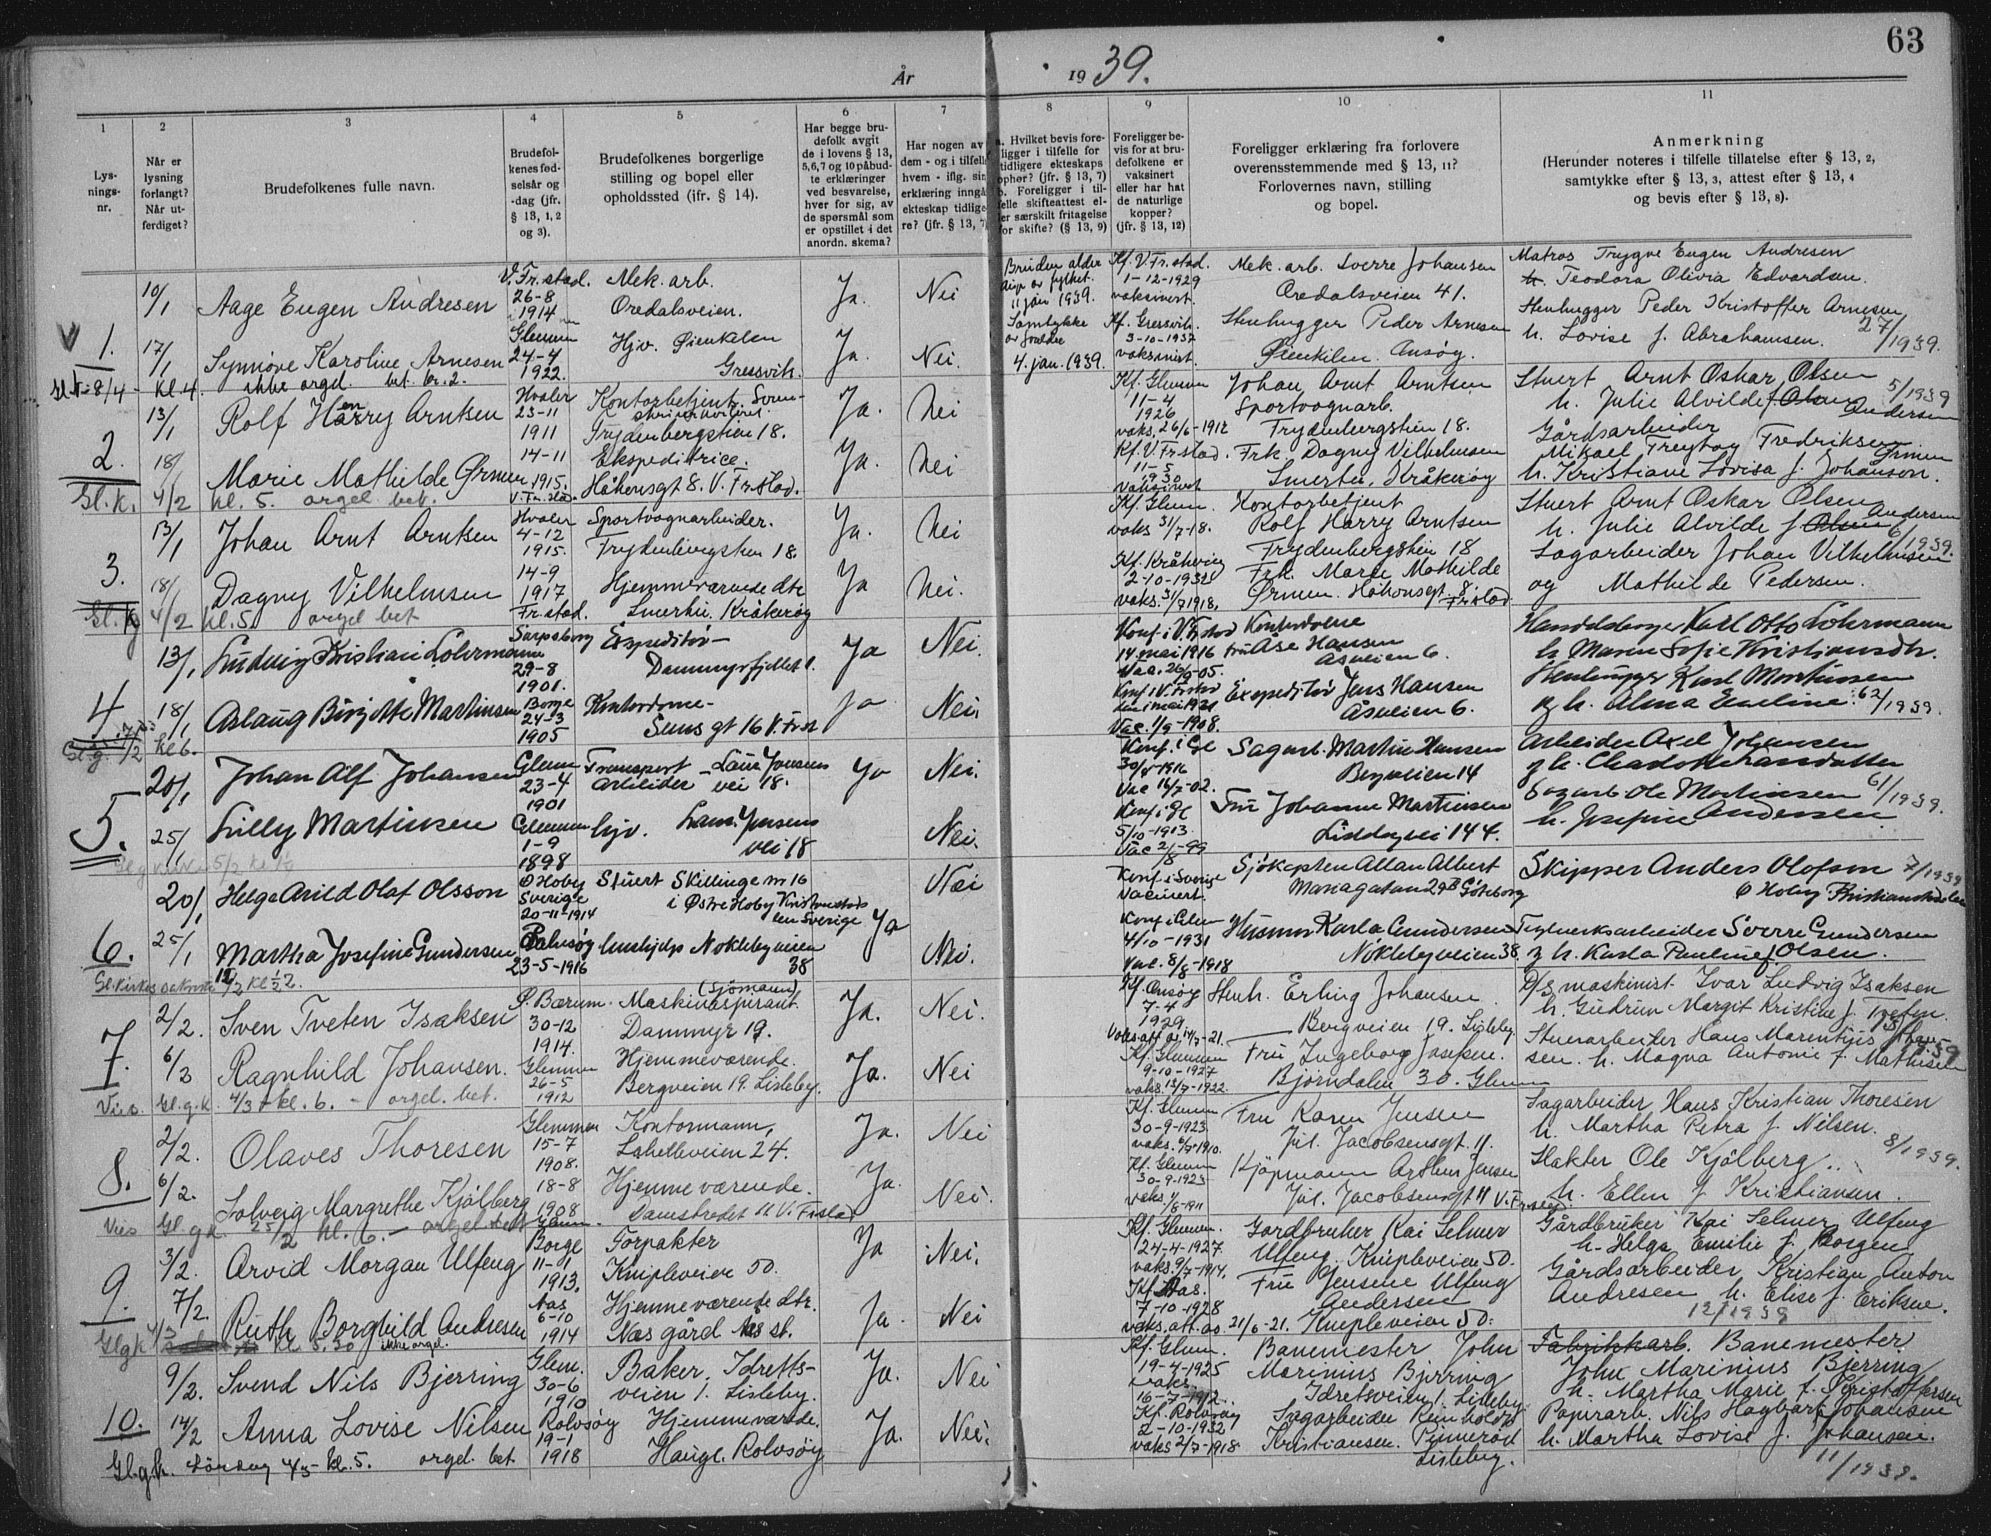 63
År 1939.
1 2 3 4 5 6 7 8 9 10 11
Lys-
nings-
nr.
Når er
lysning
forlangt?
Når ut-
ferdiget?
Brudefolkenes fulle navn.
Brudefol-
kenes fød-
selsår og
-dag (jfr.
§ 13, 1, 2
og 3).
Brudefolkenes borgerlige
stilling og bopel eller
opholdssted (jfr. § 14).
Har begge bru-
defolk avgit
de i lovens § 13,
5,6,7 og 10 påbud-
te erklæringer
ved besvarelse,
hver for sig, av
de spørsmål som
er opstillet i det
anordn. skema?
Har nogen av
dem - og i tilfelle
hvem - iflg. sin
erklæring inngå
ekteskap tidlige-
re? (jfr. § 13, 7)
a. Hvilket bevis fore-
ligger i tilfelle for
tidligere ekteskaps
ophør? (jfr. § 13, 7)
b. Foreligger i til-
felle skifteattest el-
ler særskilt fritagelse
for skifte? (§ 13, 9)
Foreligger be-
vis for at bru-
defolkene er
vaksinert
eller har hat
de naturlige
kopper?
(jfr. § 13, 12)
Foreligger erklæring fra forlovere
overensstemmende med § 13, 11?
Forlovernes navn, stilling
og bopel.
Anmerkning
(Herunder noteres i tilfelle tillatelse efter § 13, 2,
samtykke efter § 13, 3, attest efter § 13, 4
og bevis efter § 13, 8).
V 1.
10/1 Aage Eugen Andresen
V. Fr.stad.
26-8
1914
Mek. arb.
Oredalsveien.
Ja. Nei
11 jan 1939.
Kf. V. Fr.stad.
1-12-1929
vaksinert.
Mek. arb. Sverre Johansen
Oredalsveien 41.
Matros Trygve Eugen Andresen
h. Teodora Olivia Edvardsen.
17/1 Synnøve Karoline Arnesen
Glemmen
24-4
1922.
Hjv. Øienkilen
Gressvik.
Ja. Nei.
Samtykke
av foreldre
4. jan. 1939.
Kf. Gressvik.
3-10-1937
vaksinert.
Stenhugger Peder Arnesen
Øienkilen. Onsøy.
Stenhugger Peder Kristoffer Arnesen
h. Lovise f. Abrahamsen. 27/1939.
8/4 - kl. 4. ikke orgel. bet. kr. 2.
2.
13/1 Rolf Harry Arntsen
Hvaler
23-11
1911
Kontorbetjent.
Frydenbergstien 18.
Ja. Nei
Kf. Glemm
11-4
1926
vaks. 26/6-1912
Johan Arnt Arntsen
Sportvognarb.
Frydenbergstien 18.
Stuert Arnt Oskar Olsen 5/1939
h. Julie Alvilde f. Olsen Andersen
18/1 Marie Mathilde Ørmen
14-11
1915.
V. Fr.stad
Ekspeditrice.
Håkonsgt 8. V. Fr.stad.
Ja. Nei
Kf. V. Fr.stad.
11-5
1930
vaksinert
Frk. Dagny Vilhelmsen
Smertu, Kråkerøy
Gårdsarbeider
Mikael Freytag Fredriksen Ørmen
h. Kristiane Lovisa f. Johanson.
Gl. K. 4/2 kl. 5. orgel bet.
3.
13/1 Johan Arnt Arntsen
Hvaler
4-12
1915.
Sportvognarbeider.
Frydenbergstien 18.
Ja. Nei
Kf. Glem.
vaks 31/7-18.
Kontorbetjent
Rolf Harry Arntsen
Frydenbergstien 18
Stuert Arnt Oskar Olsen
h. Julie Alvilde f. Olsen Andersen
6/1939.
18/1 Dagny Vilhelmsen
14-9
1917
Fr.stad.
Hjemmeværende dtr
Smertu. Kråkerøy
Ja Nei.
Kf. Kråkerøy
2-10-1932
vaks. 31/7 1918.
Frk. Marie Mathilde
Ørmen. Håkonsgt. 8. Fr.stad.
Sagarbeider Johan Vilhelmsen
og Mathilde Pedersen.
4/2 kl. 5 orgel bet
4
13/1 Ludvig Kristian Lohrmann
Sarpsborg
29-8
1901.
Expeditør
Dammyrfjellet 1.
Ja Nei.
Konf. i V. Frstad
14. mai 1916
Vac. 26/9-05.
Kontordame
fru Åse Hansen
Åsveien 6.
Handelsborger Karl Otto Lohrmann
h Maren Sofie Kristiansdtr.
18/1 Aslaug Birgitte Martinsen
Borge
24-3
1905
Kontordame
gt 16 V. Frst
Ja Nei.
Konf. i V. Frstad
mai 1921
Vac. 1/9-1908.
Expeditør Jens Hansen
Åsveien 6.
Stenhugger Karl Martinsen
og h. Alma Eveline. 62/1939.
kl 6.
5.
20/1 Johan Alf Johansen
Glem
23-4
1901
Transport
arbeider
vei 18.
Ja Nei.
Konf. i Gl
30/4-1916
Vac 16/7-02.
Sagarb. Martin Hansen
Bergveien 14
Arbeider Axel Johansen
25/1 Lilly Martinsen
Glemmen
1-9
1898
hjv. Lars Jensens
vei 18
Nei.
Konf. i Gl
5/10-1913.
Fru Johanne Martinsen
144.
Sagarb. Ole Martinsen 61/1939.
h. Josefine Andersen.
6.
20/1 Helge Arild Olaf Olsson
Ø Hoby
Sverige
20-11-1914
Stuert Skillinge nr 16
i Østre Hoby Kristianstads
len Sverige
Ja Nei
Konf. i Sverige
Vaccinert.
Sjökapten Allan Albert
Monagatan 29B Göteborg
Skipper Anders Olofson 7/1939
Ø Hoby Kristianstads len
25/1 Martha Josefine Gundersen
Rolvsøy
23-5-1916
hushjelp Noklebyveien
38
Nei.
Konf. i Glem
4/10-1931
Vac. 8/8-1918
Husmor Karla Gundersen
Noklebyveien 38.
Teglverksarbeider Sverre Gundersen
og h. Karla Pauline f. Olsen.
12/2 kl ½ 2.
7.
2/2. Sven Tveten Isaksen
Ø. Bærum.
30-12
1914.
(Sjømann)
Maskinaspirant.
Dammyr 19.
Ja. Nei.
Kf. Onsøy
7-4
1929
Vaks. att. av 14/7-21.
Stenh. Erling Johansen
Bergveien 19. Lisleby.
D/s maskinist Ivar Ludvig Isaksen
h. Gudrun Margit Kristine f. Tveten.
6/3 Ragnhild Johansen.
Glemmen
26-5
1912
Hjemmeværende.
Bergveien 19. Lisleby.
Ja. Nei
Kf. Glemmen
9-10-1927
vaks. 13/7-1922.
Fru Ingeborg Josefsen.
Bjørndalen 30. Glemm
Stuerarbeider Hans Marentius Johan-
sen. h. Magna Antonie f. Mathisen
1939
Vies. Gl. g. k. 4/3 - kl. 6. - orgel. bet.
8.
2/2. Olaves Thoresen
Glemmen
15-7
1908.
Kontormann,
Lahelleveien 24.
Ja. Nei
Kf. Glemm
30-9-1923.
Fru Karen Jensen
Jul. Jacobsensgt. 11.
Sagarbeider Hans Kristian Thoresen
h. Martha Petra f. Nilsen.
8/1939.
6/2. Solveig Margrethe Kjölberg
18-8
1908
Glemm.
Hjemmeværende.
Damstredet 11 V. Fr.stad
Ja. Nei.
Kf. Glemm
30-9-1923
Kjøpmann Arthur Jensen
Jul. Jacobsensgt 11 V. Fr.stad.
Slakter Ole Kjölberg
h. Ellen f. Kristiansen.
Vies Gl. g k. 25/2 kl. 6. - orgel bet
9.
3/2. Arvid Morgan Ulfeng
Borge
11-11
1913.
Forpakter
Knipleveien 50.
Ja Nei.
Kf. Glemmen.
24-4-1927.
vaks. 9/7-1914.
Gardbruker Kai Selmer
Ulfeng. Knipleveien 50.
Gårdbruker Kai Selmer Ulfeng
h. Helga Emilie f. Borgen
7/2. Ruth Borghild Andresen
Aas
6-10
1914
Hjemmeværende dtr.
Næs gård Aas st.
Ja. Nei
Kf. Aas.
7-10-1928
vaks. att. av 21/6-21.
Fru Jensine Ulfeng
Andersen
Knipleveien 50.
Gårdsarbeider Kristian Anton
Andresen h. Elise f. Eriksen.
12/1939
4/3 kl 5.30 ikke orgel.
10.
9/2. Svend Nils Bjerring
Glem.
30-6
1910
Baker. Idretts-
veien 1. Lisleby.
Ja. Nei
Kf. Glem.
19-4-1925
vaks.
16-7-1912.
Banemester John
Marinius Bjerring
Idretsveien 1. Lisleby
Fabrikkarb. Banemester
John Marinius Bjerring
h. Martha Marie f. Kristoffersen
14/2 Anna Lovise Nilsen
Rolvsøy
19-1
1918
Hjemmeværende.
Hauge. Rolvsøy
Ja. Nei.
Kf. Rolvsøy
2-10-1932
vaks 2/7-1918
Sagarbeider Reinholdt
Kristiansen. Pinnerød
Lisleby.
Papirarb. Nils Hagbart Johansen
h. Martha Lovise f. Johansen.
11/1939.
Gl. g. k. Lørdag 4/3 - kl. 5. orgel. bet.